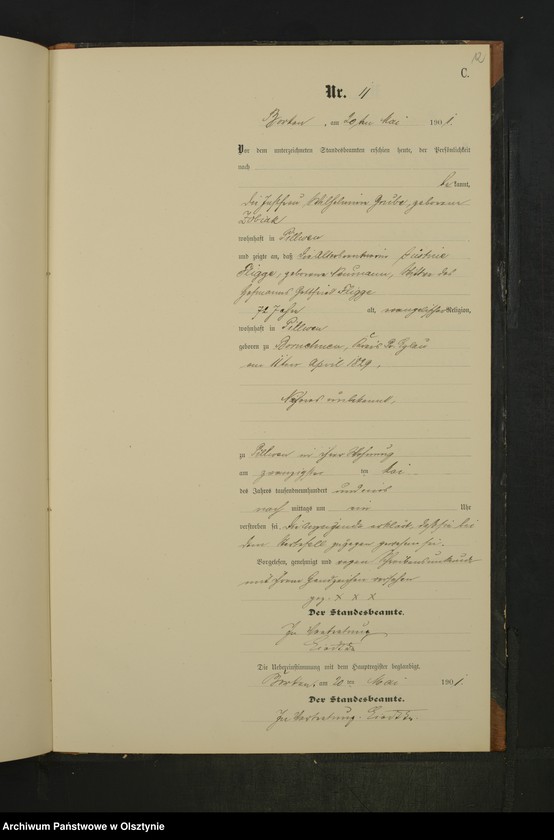 12
C.
Nr. 11
Borken, am 20ten Mai 1901.
Vor dem unterzeichneten Standesbeamten erschien heute, der Persönlichkeit
nach
be kannt,
die Wilhelmine Grube, geborene
wohnhaft in Pillwen
und zeigte an, daß die Justine
Fligge, geborene Neumann, Witwe des
Hofmanns Gottfried Fligge
72 Jahre alt, evangelischer Religion,
wohnhaft in Pillwen
geboren zu Kreis Pr. Eylau
am April 1829.
Näheres unbekannt.
zu Pillwen in ihrer Wohnung
am zwanzigsten Mai
des Jahres tausendneunhundert und eins
nach mittags um ein Uhr
verstorben sei. Die Anzeigende erklärt, daß sie bei
dem Sterbefall zugegen gewesen sei.
Vorgelesen, genehmigt und wegen Schreibensunkunde
mit ihrem Handzeichen versehen
gez. x x x
Der Standesbeamte.
In Vertretung
Die Uebereinstimmung mit dem Hauptregister beglaubigt.
Borken, am 20ten Mai 1901.
Der Standesbeamte.
In Vertretung
Archiwum Państwowe w Olsztynie